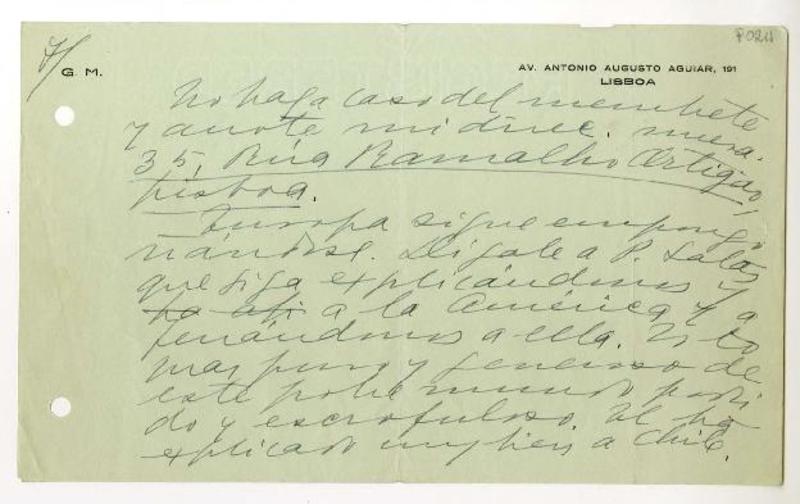 7/
G. M.
P0211
AV. ANTONIO AUGUSTO AGUIAR, 191
LISBOA
No haga caso del membrete
y anote mi direc. nueva.
35, Rúa Ramalho Ortigao,
Lisboa.
Europa sigue empongo
ñándose. Dígale a P. Salas
que siga explicándonos
a la América y a
a ella. Es lo
mas puro y generoso de
este pobre mundo podri
do y escrofuloso. El ha
explicado muy bien a Chile.